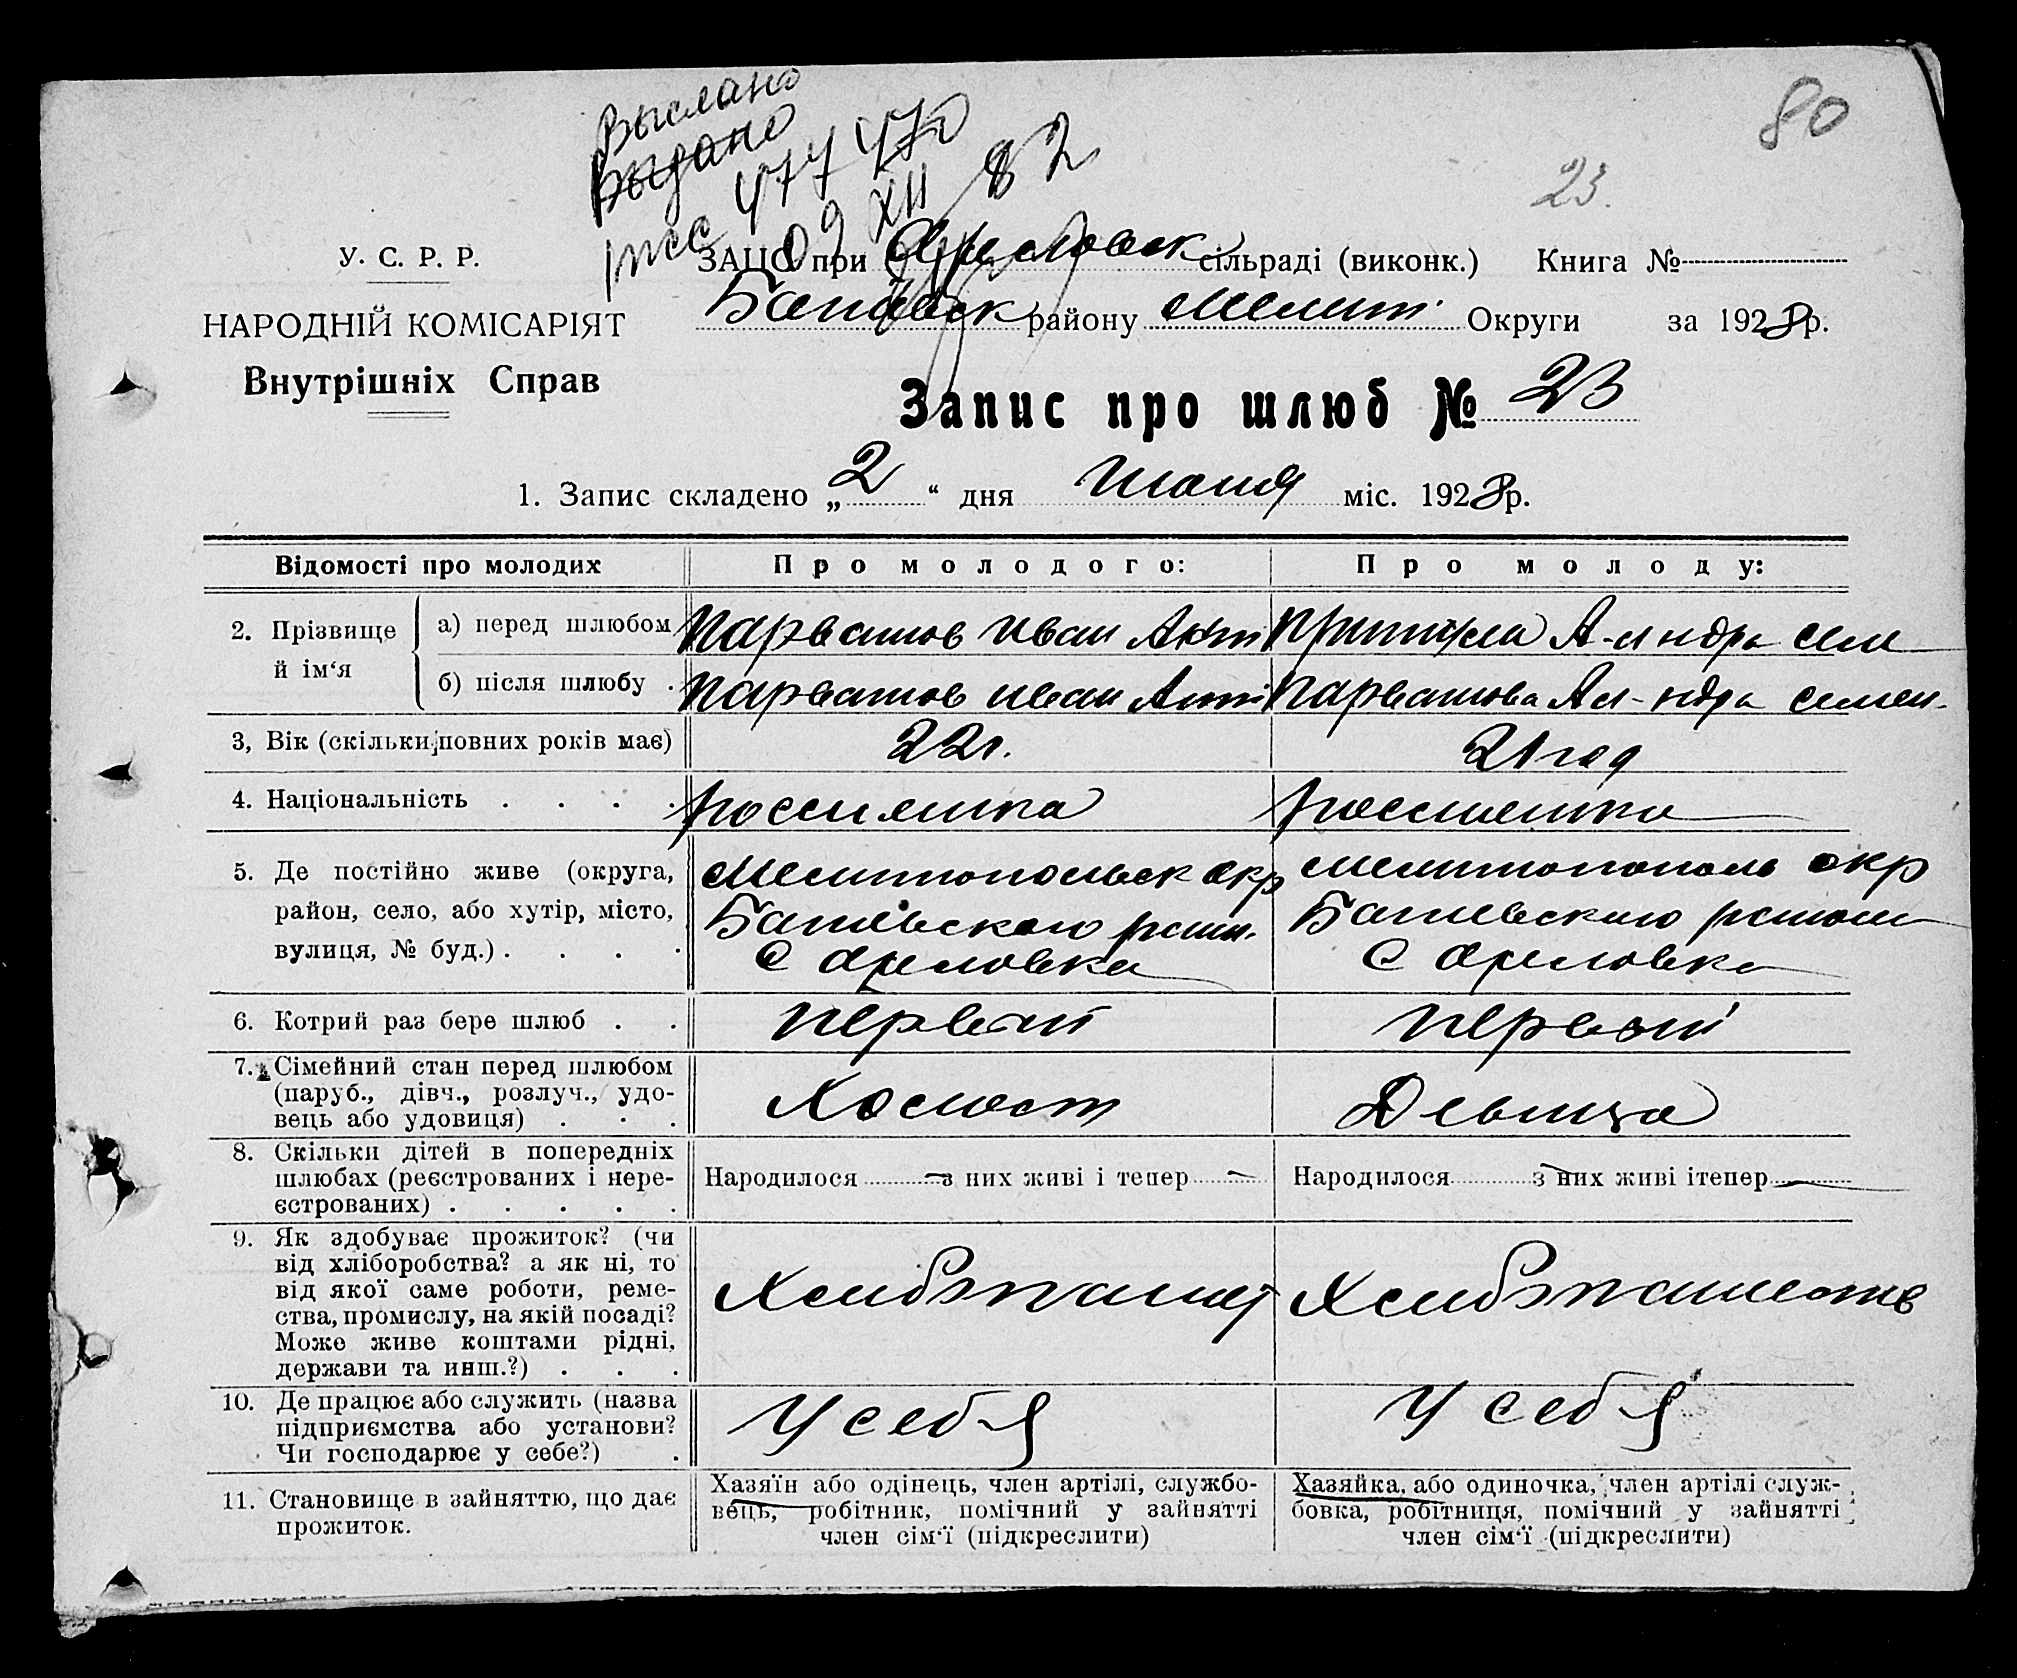 80
Выслано
Выдано
477 470
09 XII 82
23.
У. С. Р. Р.
НАРОДНІЙ КОМІСАРІЯТ
Внутрішніх Справ
ЗАЦС при Орловск сільраді (виконк.) Книга №
района Мелит. Округи за 1928 р.
Запис про шлюб № 23
1. Запис складено „2“ дня Июня міс. 1928 р.
Відомості про молодих
Про молодого:
Про молоду:
2. Прізвище й ім‘я
а) перед шлюбом
Парватов Иван
Притула А-лндра Сем
б) після шлюбу .
Парватов Иван
Парватова Ал-ндра Семен.
3, Вік (скільки повних років має)
22 г.
21 год
4. Національність . . . .
россиянка
россиянка
5. Де постійно живе (округа,
район, село, або хутір, місто,
вулиця, № буд.) . . . .
Мелитопольск окр
район.
С Орловка
Мелитопополь окр
С Орловка
6. Котрий раз бере шлюб . .
первый
первый
7. Сімейний стан перед шлюбом
(паруб., дівч., розлуч., удо-
вець або удовиця) . . .
Холост
Девица
8. Скільки дітей в попередніх
шлюбах (реєстрованих і нере-
єстрованих) . . . . .
Народилося — з них живі і тепер —
Народилося — з них живі ітепер —
9. Як здобуває прожиток? (чи
від хліборобства? а як ні, то
від якої саме роботи, реме-
ства, промислу, на якій посаді?
Може живе коштами рідні,
держави та инш.?) . . .
Хлибопашест
Хлибопашеств
10. Де працює або служить (назва
підприємства або установи?
Чи господарює у себе?) .
У себя
У себя
11. Становище в зайняттю, що дає
прожиток.
Хазяїн або одінець, член артілі, службо-
вець, робітник, помічний у зайнятті
член сім‘ї (підкреслити)
Хазяйка, або одиночка, член артілі служ-
бовка, робітниця, помічний у зайнятті
член сім‘ї (підкреслити)